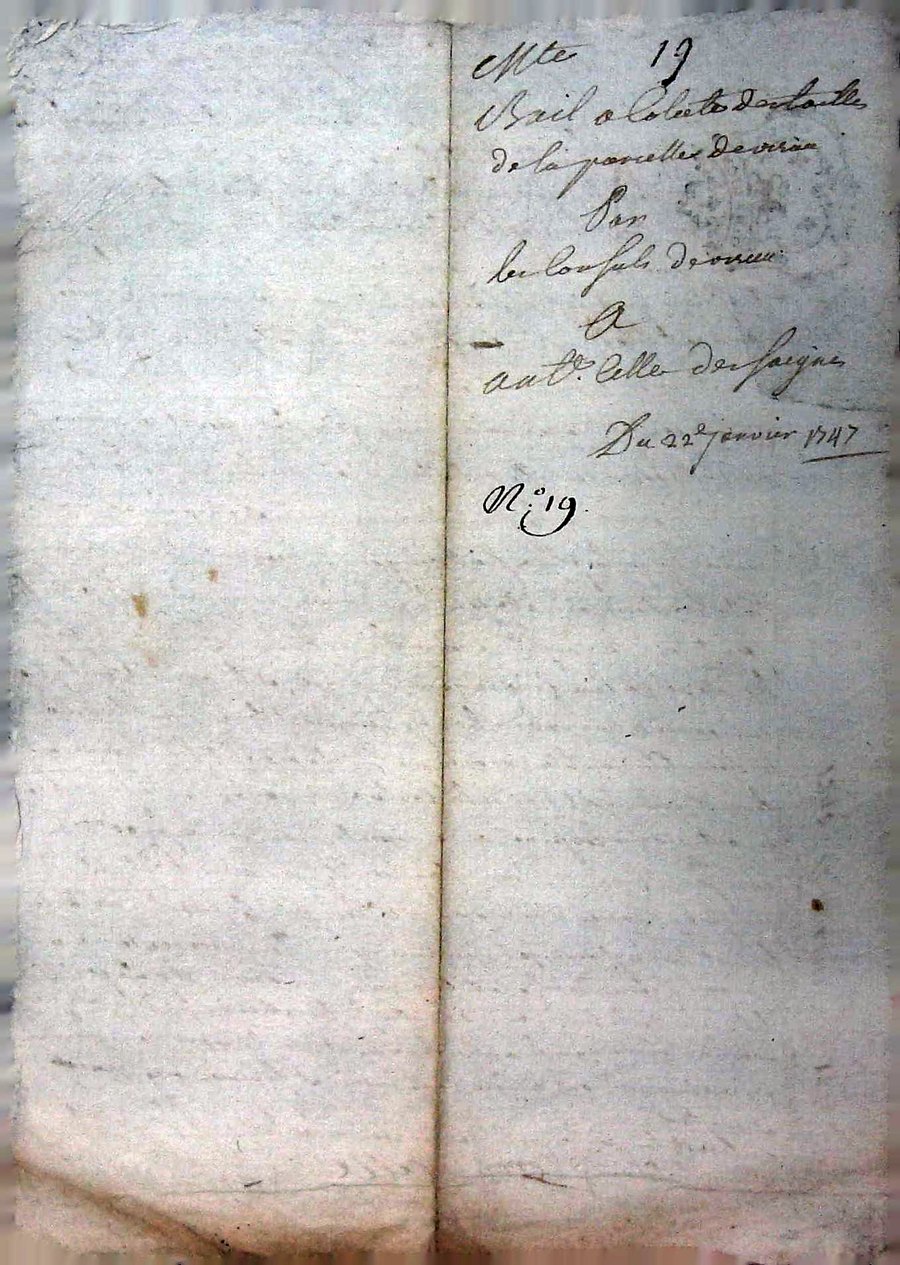 Cotte 19
Bail a Colecte des tailles
de la parcelle de
Par
les Consuls de
A
ant.e Celle des saignes
Du 22e janvier 1747
N.o 19.